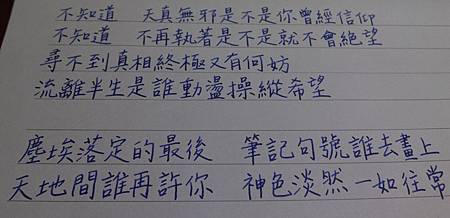 不知道　天真無邪是不是你曾經信仰
不知道　不再執著是不是就不會絕望
尋不到真相終極又有何妨
流離半生是誰動盪操縱希望
塵埃落定的最後　筆記句號誰去畫上
天地間誰再許你　神色淡然一如往常